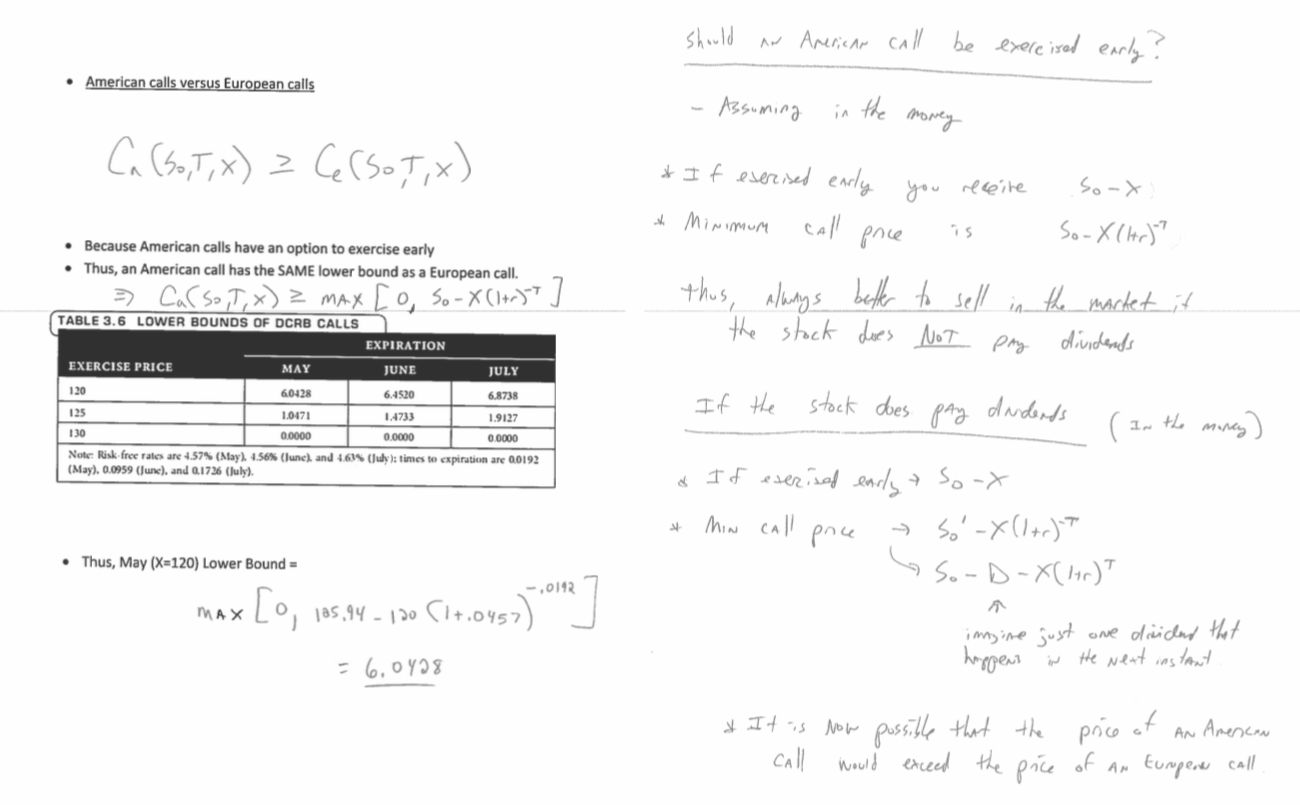 • American calls versus European calls
Ca(So,T,X) ≥ Ce(So,T,X)
• Because American calls have an option to exercise early
• Thus, an American call has the SAME lower bound as a European call.
⇒ Ca(So,T,X) ≥ MAX [0, So-X(1+r)^-T]
TABLE 3.6 LOWER BOUNDS OF DCRB CALLS
EXPIRATION
EXERCISE PRICE MAY JUNE JULY
120 6.0428 6.4520 6.8738
125 1.0471 1.4733 1.9127
130 0.0000 0.0000 0.0000
Note: Risk-free rates are 4.57% (May), 4.56% (June), and 4.63% (July); times to expiration are 0.0192
(May), 0.0959 (June), and 0.1726 (July).
• Thus, May (X=120) Lower Bound =
MAX [0, 125.94 - 120 (1+.0457)^-.0192]
= 6.0428
Should an American call be exercised early?
- Assuming in the money
* If exercised early you receive So-X
* Minimum call price is So-X(1+r)^-T
thus, always better to sell in the market if
the stock does NOT pay dividends
If the stock does pay dividends (In the money)
* If exercised early → So-X
* Min call price → So'-X(1+r)^-T
↳ So-D-X(1+r)^T
↑
imagine just one dividend that
happens in the next instant.
* It is now possible that the price of an American
call would exceed the price of an European call.